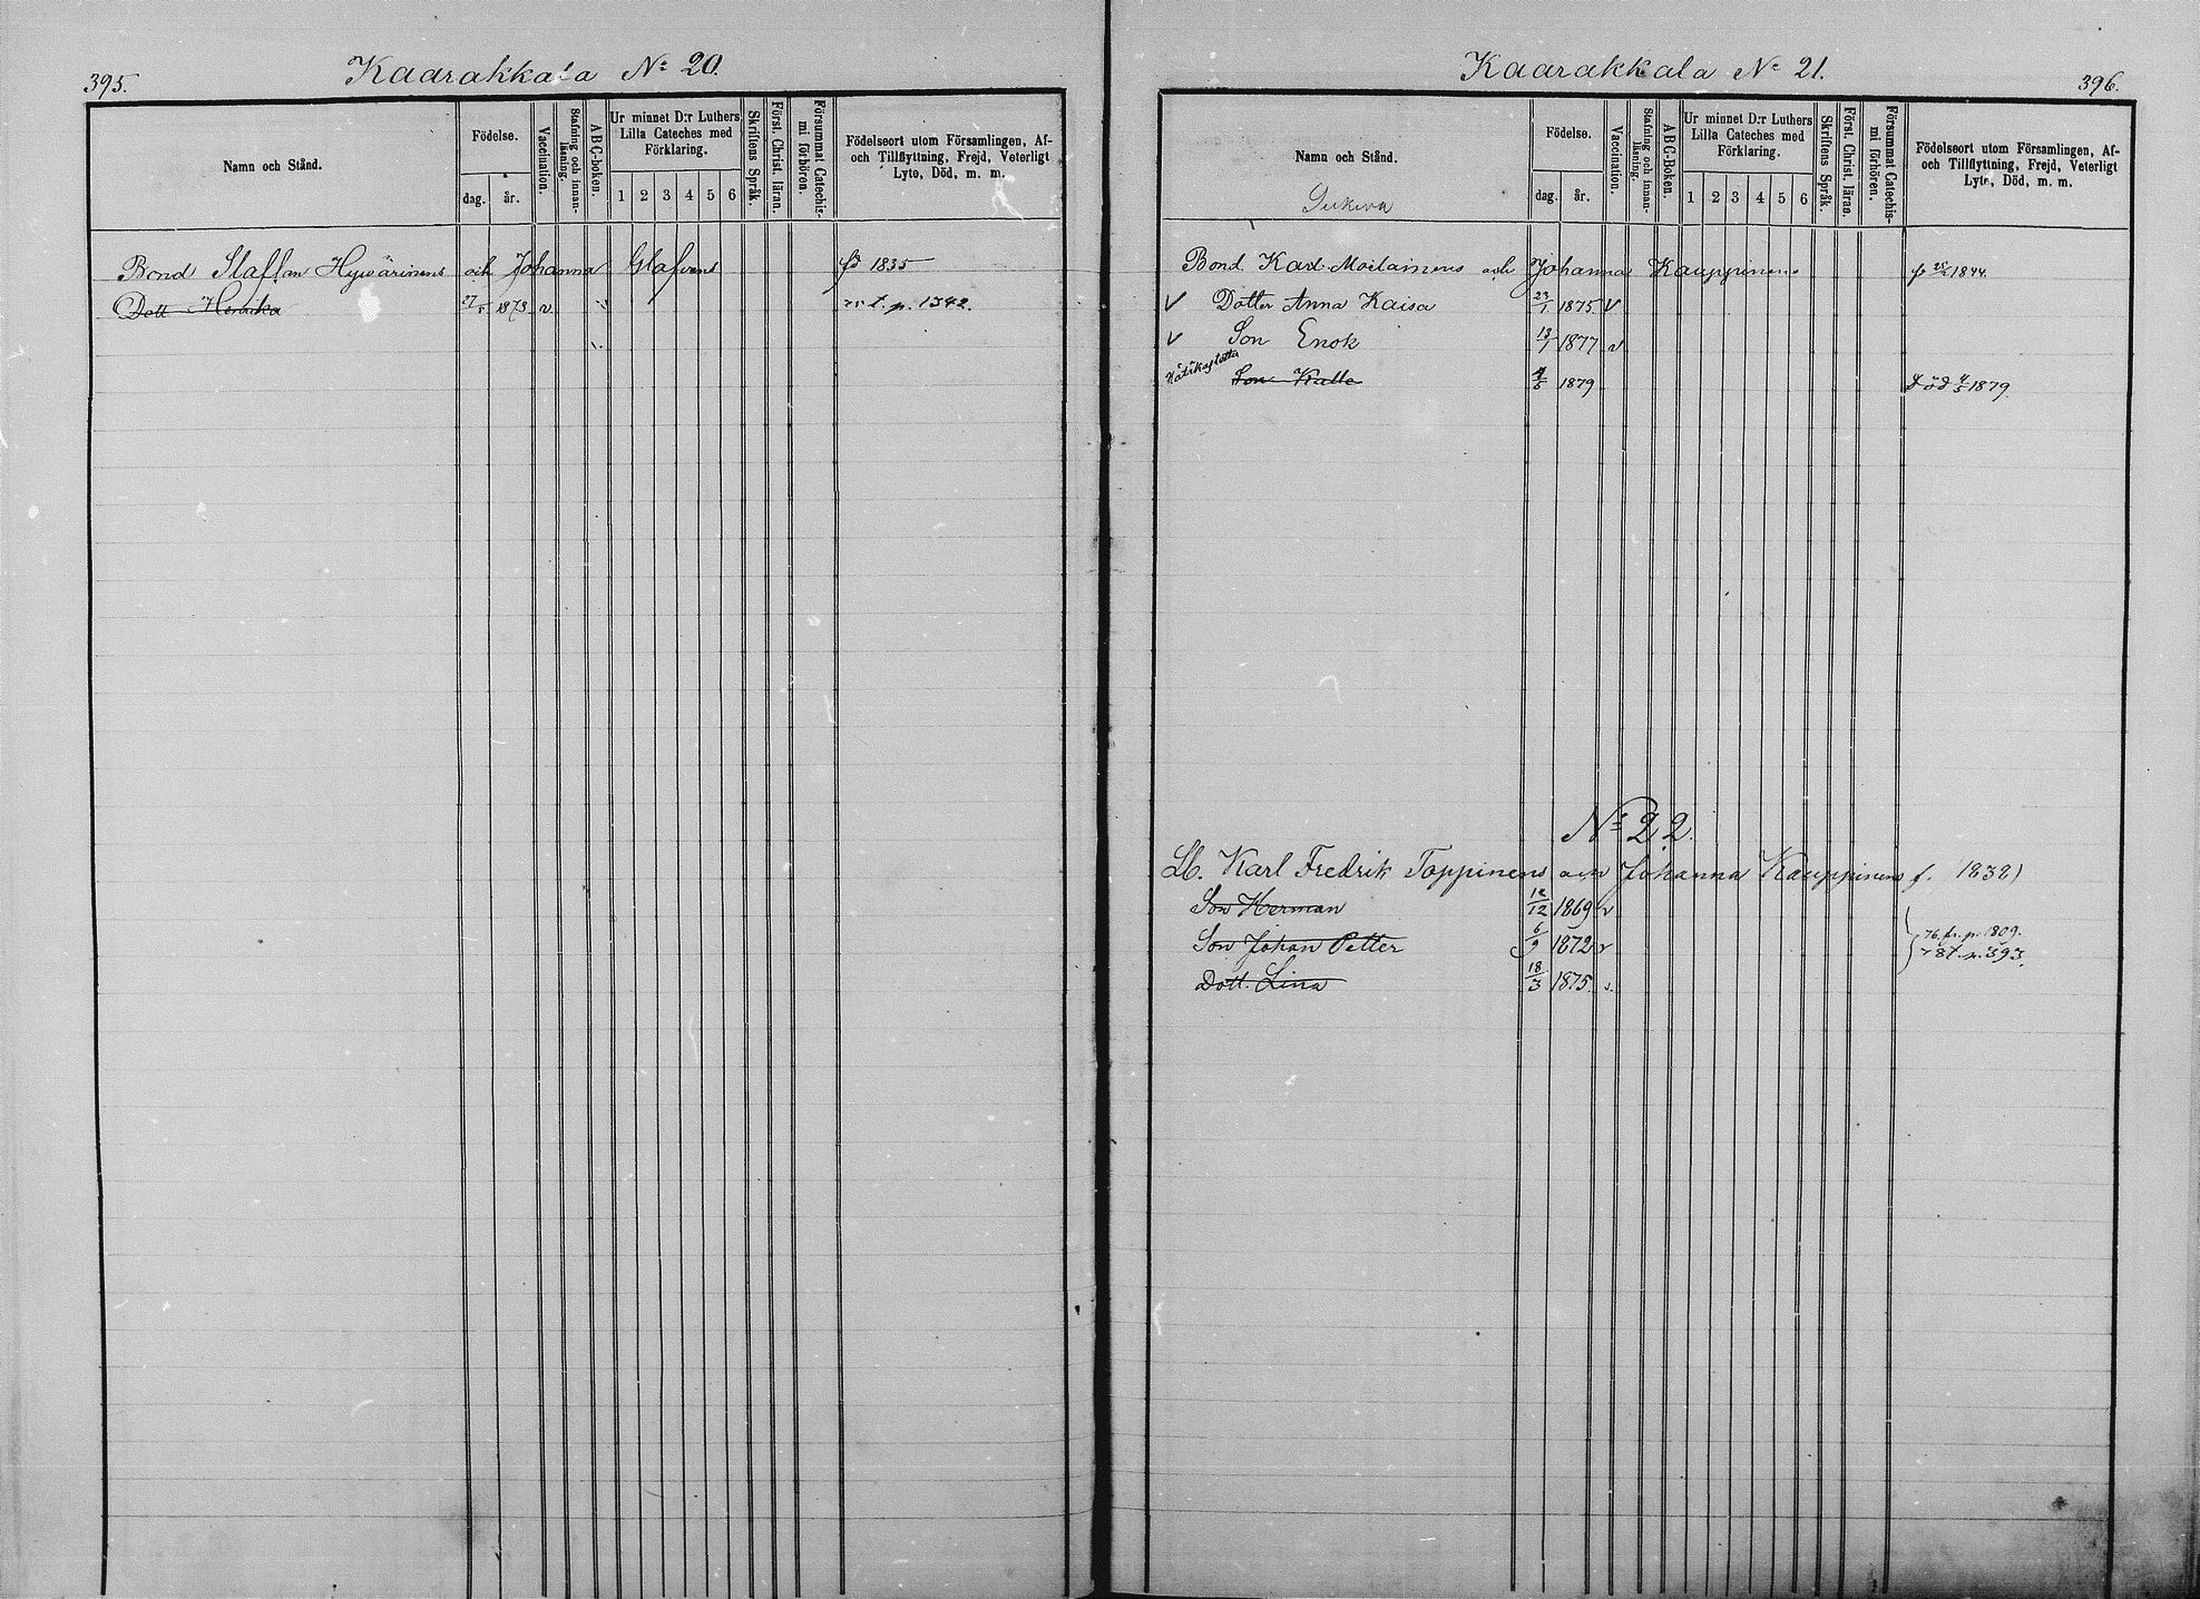 395.
Kaarakkala No 20.
Namn och Stånd.
Födelse.
dag.
år.
Vaccination.
Stafning och innan-
läsning.
ABC-boken.
Ur minnet D:r Luthers
Lilla Cateches med
Förklaring.
1 2 3 4 5 6
Skriftens Språk.
Först. Christ. läran.
Försummat Catechis-
mi förhören.
Födelseort utom Församlingen, Af-
och Tillflyttning, Frejd, Veterligt
Lyte, Död, m. m.
Bond Staffan Hywärinens och Johanna Glafvens fd 1835
Dott Henrika 27/5 1873 v t. p. 1342.
Kaarakkala No 21.
396.
Namn och Stånd.
Födelse.
dag.
år.
Vaccination.
Stafning och innan-
läsning.
ABC-Boken.
Ur minnet D:r Luthers
Lilla Cateches med
Förklaring.
1 2 3 4 5 6
Skriftens Språk.
Först. Christ. läran.
Försummat Catechis-
mi förhören.
Födelseort utom Församlingen, Af-
och Tillflyttning, Frejd, Veterligt
Lyte, Död, m. m.
Sukeva
Bond Karl Moilainens och Johanna Kauppinens f 1844.
V Dotter Anna Kaisa 23/1 1875. V
V Son Enok 13/1 1877 v
Son Kalle 4/5 1879 Död 4/5 1879.
No 22.
Lb. Karl Fredrik Toppinens och Johanna Kauppinens f. 1838)
Son Herman 12/12 1869 v
Son Johan Petter 6/9 1872 v 76. fr. p. 1809.
78 t. p. 393.
Dott. Lina 18/3 1875. v.